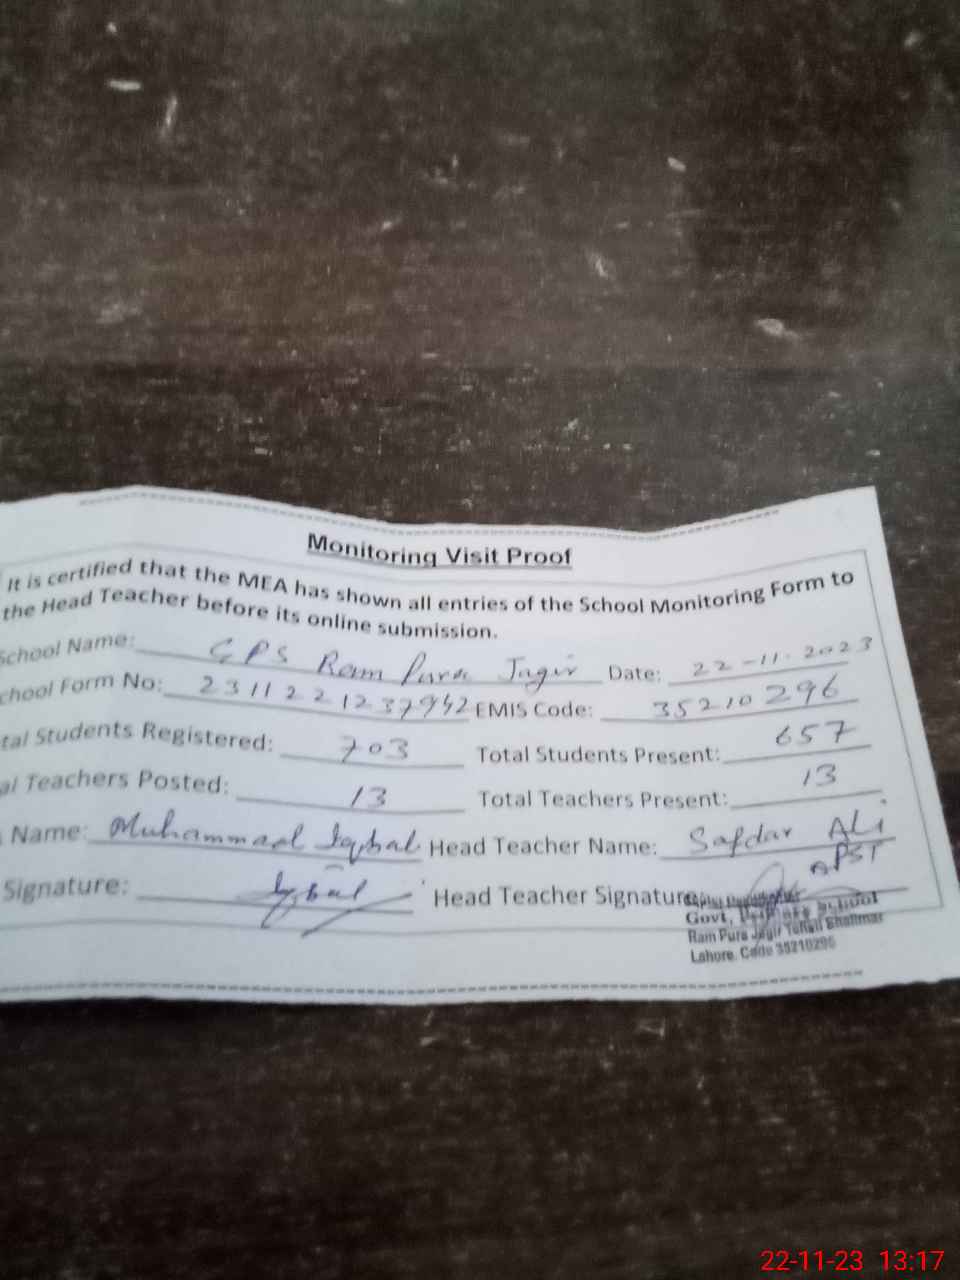 Monitoring Visit Proof
It is certified that the MEA has shown all entries of the School Monitoring Form to
the Head Teacher before its online submission.
School Name: GPS Ram Pura Jagir Date: 22-11-2023
chool Form No: 2311221237942 EMIS Code: 35210296
tal Students Registered: 703 Total Students Present: 657
al Teachers Posted: 13 Total Teachers Present: 13
Name: Muhammad Iqbal Head Teacher Name: Safdar ALi
PST
Signature: Iqbal Head Teacher Signature:
Govt, Primary School
Ram Pura Jagir Tehsil Shalimar
Lahore. Code 35210296
22-11-23 13:17